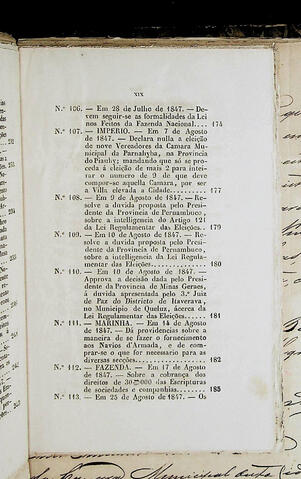 XIX
N.º 106. — Em 28 de Julho de 1847. — De-
vem seguir-se as formalidades da Lei
nos Feitos da Fazenda Nacional.... 174
N.º 107. — IMPERIO. — Em 7 de Agosto
de 1847. — Declara nulla a eleição
de nove Vereadores da Camara Mu-
nicipal da Parnahyba, na Provincia
do Piauhy; mandando que só se pro-
ceda á eleição de mais 2 para intei-
rar o numero de 9 de que deve
compor-se aquella Camara, por ser
a Villa elevada a Cidade.......... 177
N.º 108. — Em 9 de Agosto de 1847. — Re-
solve a duvida proposta pelo Presi-
dente da Provincia de Pernambuco,
sobre a intelligencia do Artigo 121
da Lei Regulamentar das Eleições. 179
N.º 109. — Em 10 de Agosto de 1847. — Re-
solve a duvida proposta pelo Presi-
dente da Provincia de Pernambuco,
sobre a intelligencia da Lei Regula-
mentar das Eleições............... 180
N.º 110. — Em 10 de Agosto de 1847. —
Approva a decisão dada pelo Presi-
dente da Provincia de Minas Geraes,
á duvida apresentada pelo 3.º Juiz
de Paz do Districto de Itaverava,
no Municipio de Queluz, ácerca da
Lei Regulamentar das Eleições.... 181
N.º 111. — MARINHA. — Em 14 de Agosto
de 1847. — Dá providencias sobre a
maneira de se fazer o fornecimento
aos Navios d'Armada, e de com-
prar-se o que for necessario para as
diversas secções.................. 182
N.º 112. — FAZENDA. — Em 17 de Agosto
de 1847. — Sobre a cobrança dos
direitos de 30$000 das Escripturas
de sociedades e companhias........ 185
N.º 113. — Em 25 de Agosto de 1847. — Os
Municipal